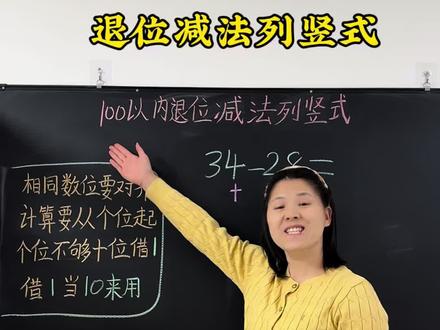 退位减法列竖式
100以内退位减法列竖式
34-28=
十
相同数位要对齐
计算要从个位起
个位不够十位借1
借1当10来用